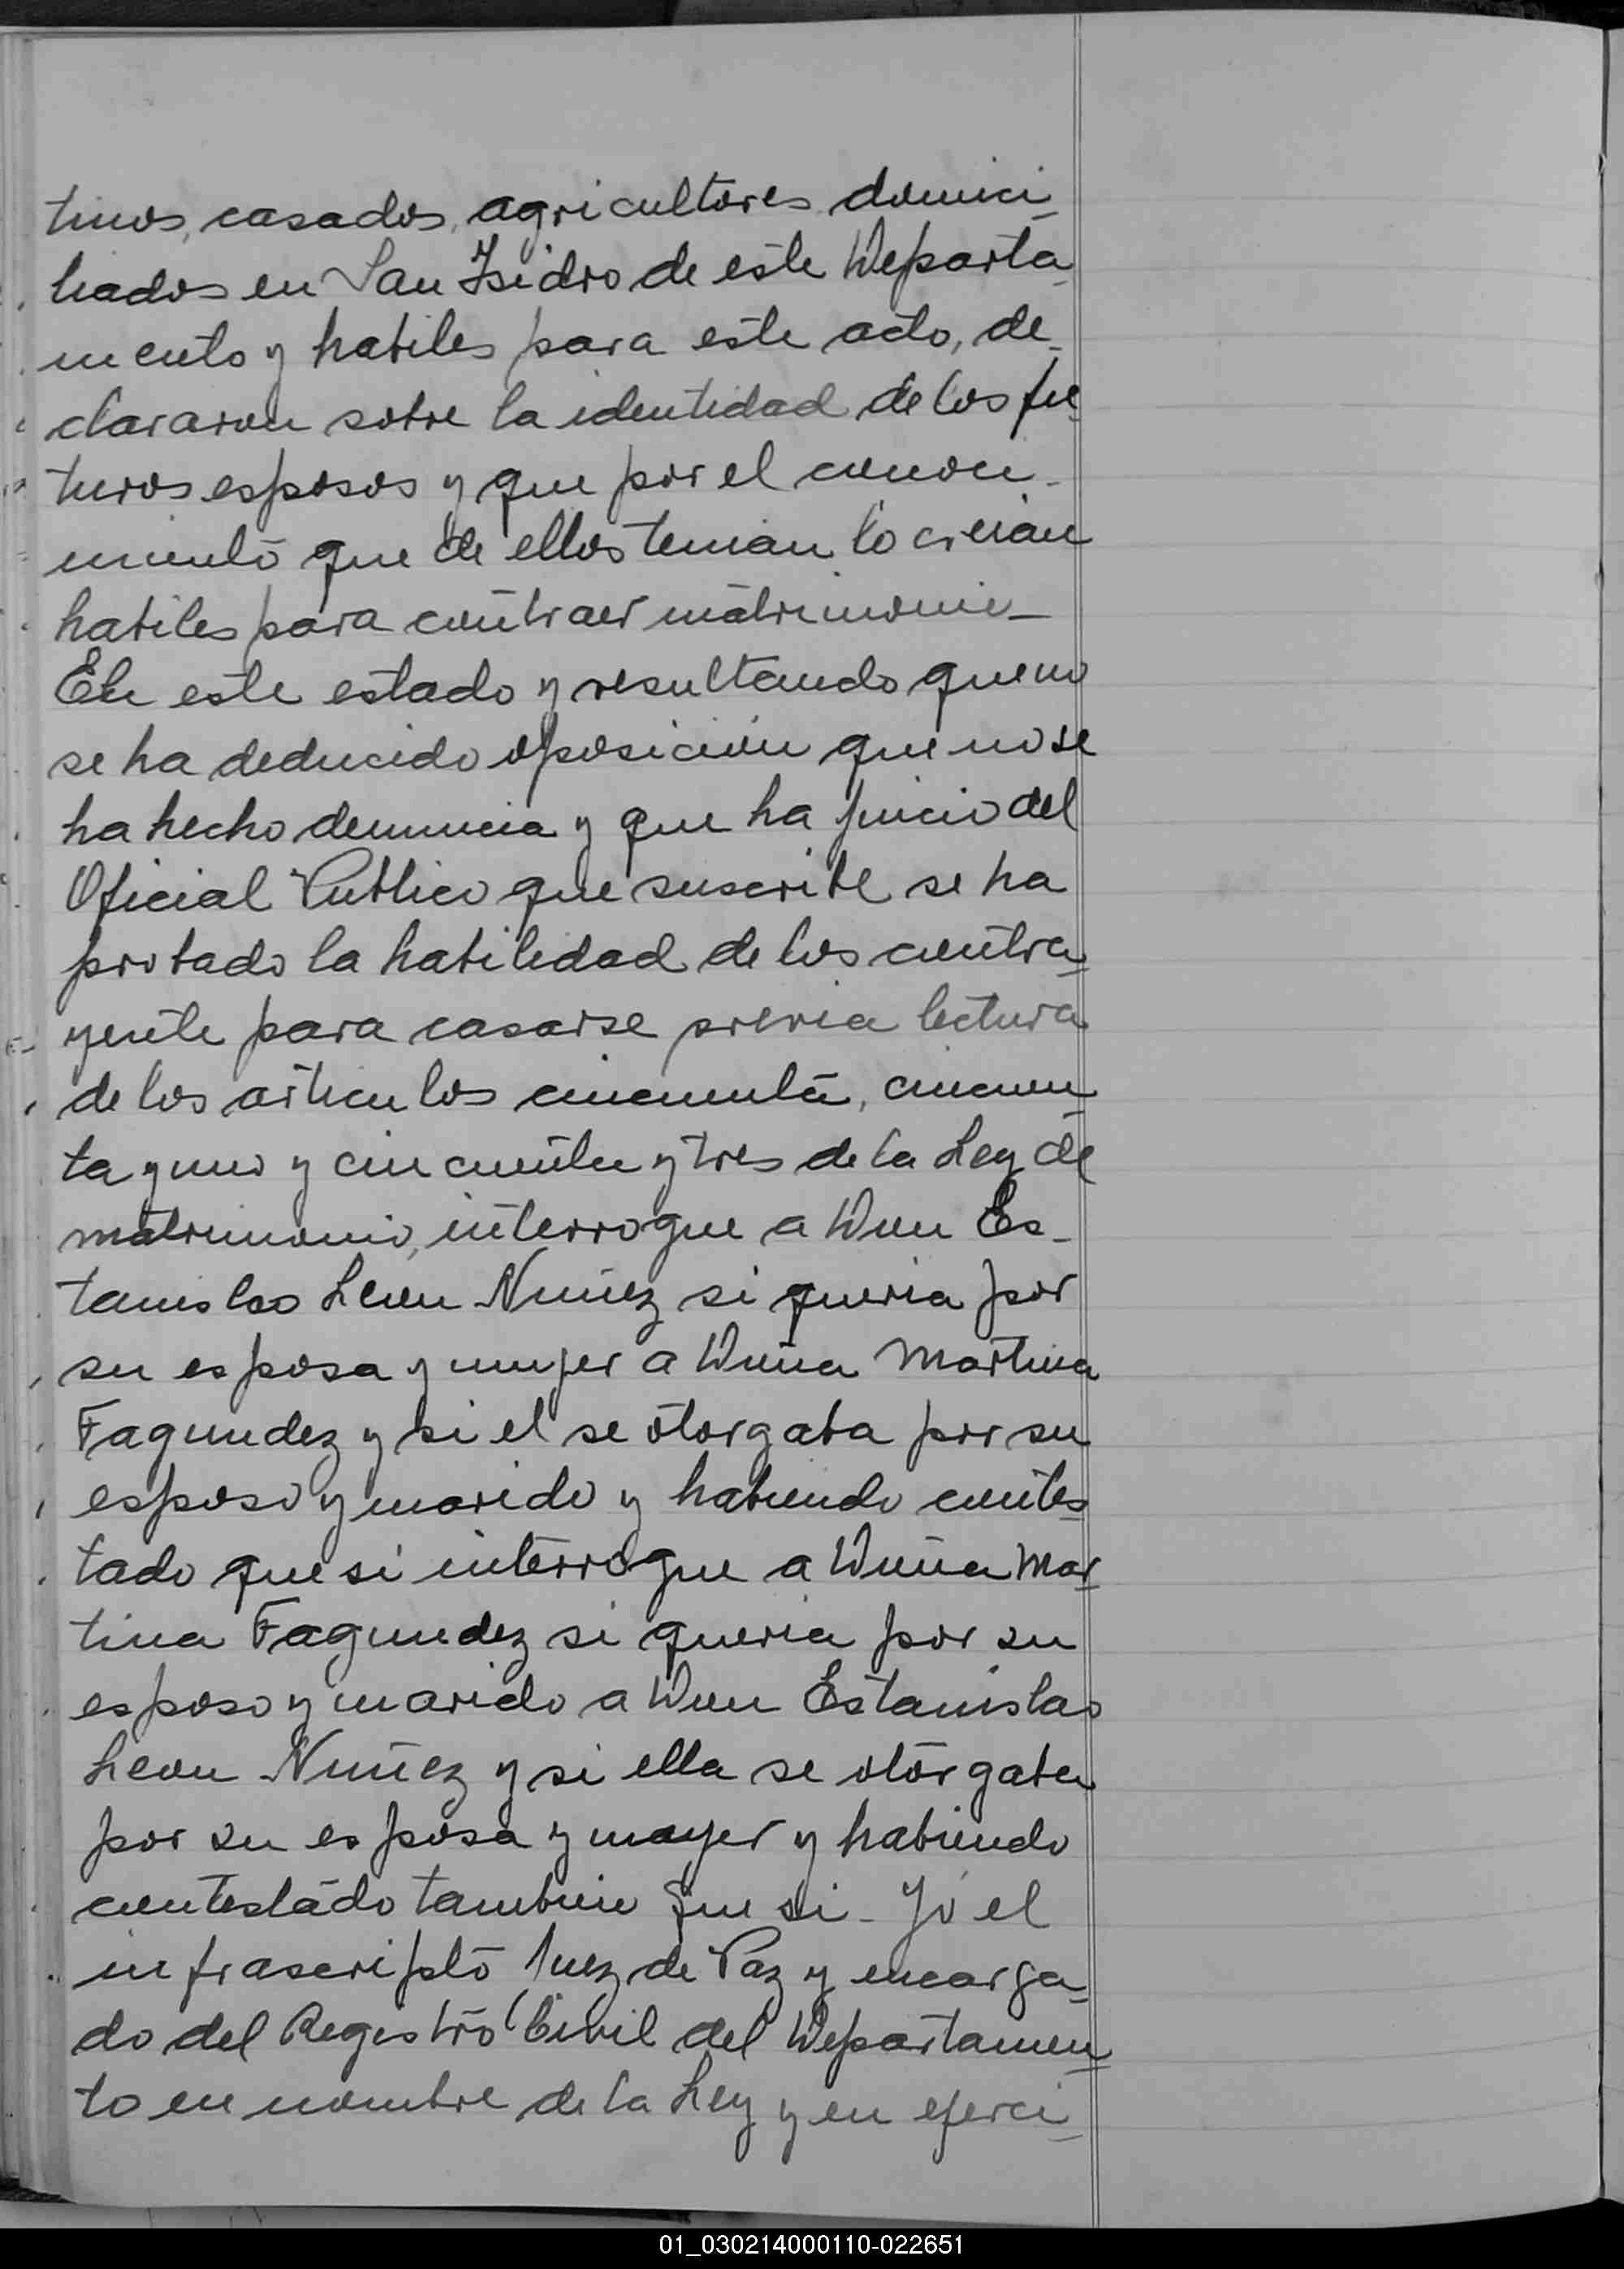 tinos, casados, agricultores domici_
liados en San Isidro de este Departa_
mento y habiles para este acto, de_
clararon sobre la identidad de los fu_
turos esposos y que por el conoci_
miento que de ellos tenian lo creian
habiles para contraer matrimonio_
En este estado y resultando que no
se ha deducido oposicion que no se
ha hecho denuncia y que ha juicio del
Oficial Publico que suscribe se ha
probado la habilidad de los contra_
yente para casarse previa lectura
de los articulos cincuenta, cincuen_
ta y uno y cincuenta y tres de la Ley de
matrimonio, interrogue a Don Es_
tanislao Leon Nuñez si queria por
su esposa y mujer a Doña Martina
Fagundez y si el se otorgaba por su
esposo y marido y habiendo contes_
tado que si interrogue a Doña Mar_
tina Fagundez si queria por su
esposo y marido a Don Estanislao
Leon Nuñez y si ella se otorgaba
por su esposa y mujer y habiendo
contestado tambien que si_ Yo el
infrascripto Juez de Paz y encarga_
do del Registro Civil del Departamen_
to en nombre de la Ley y en ejerci_
01_030214000110-022651